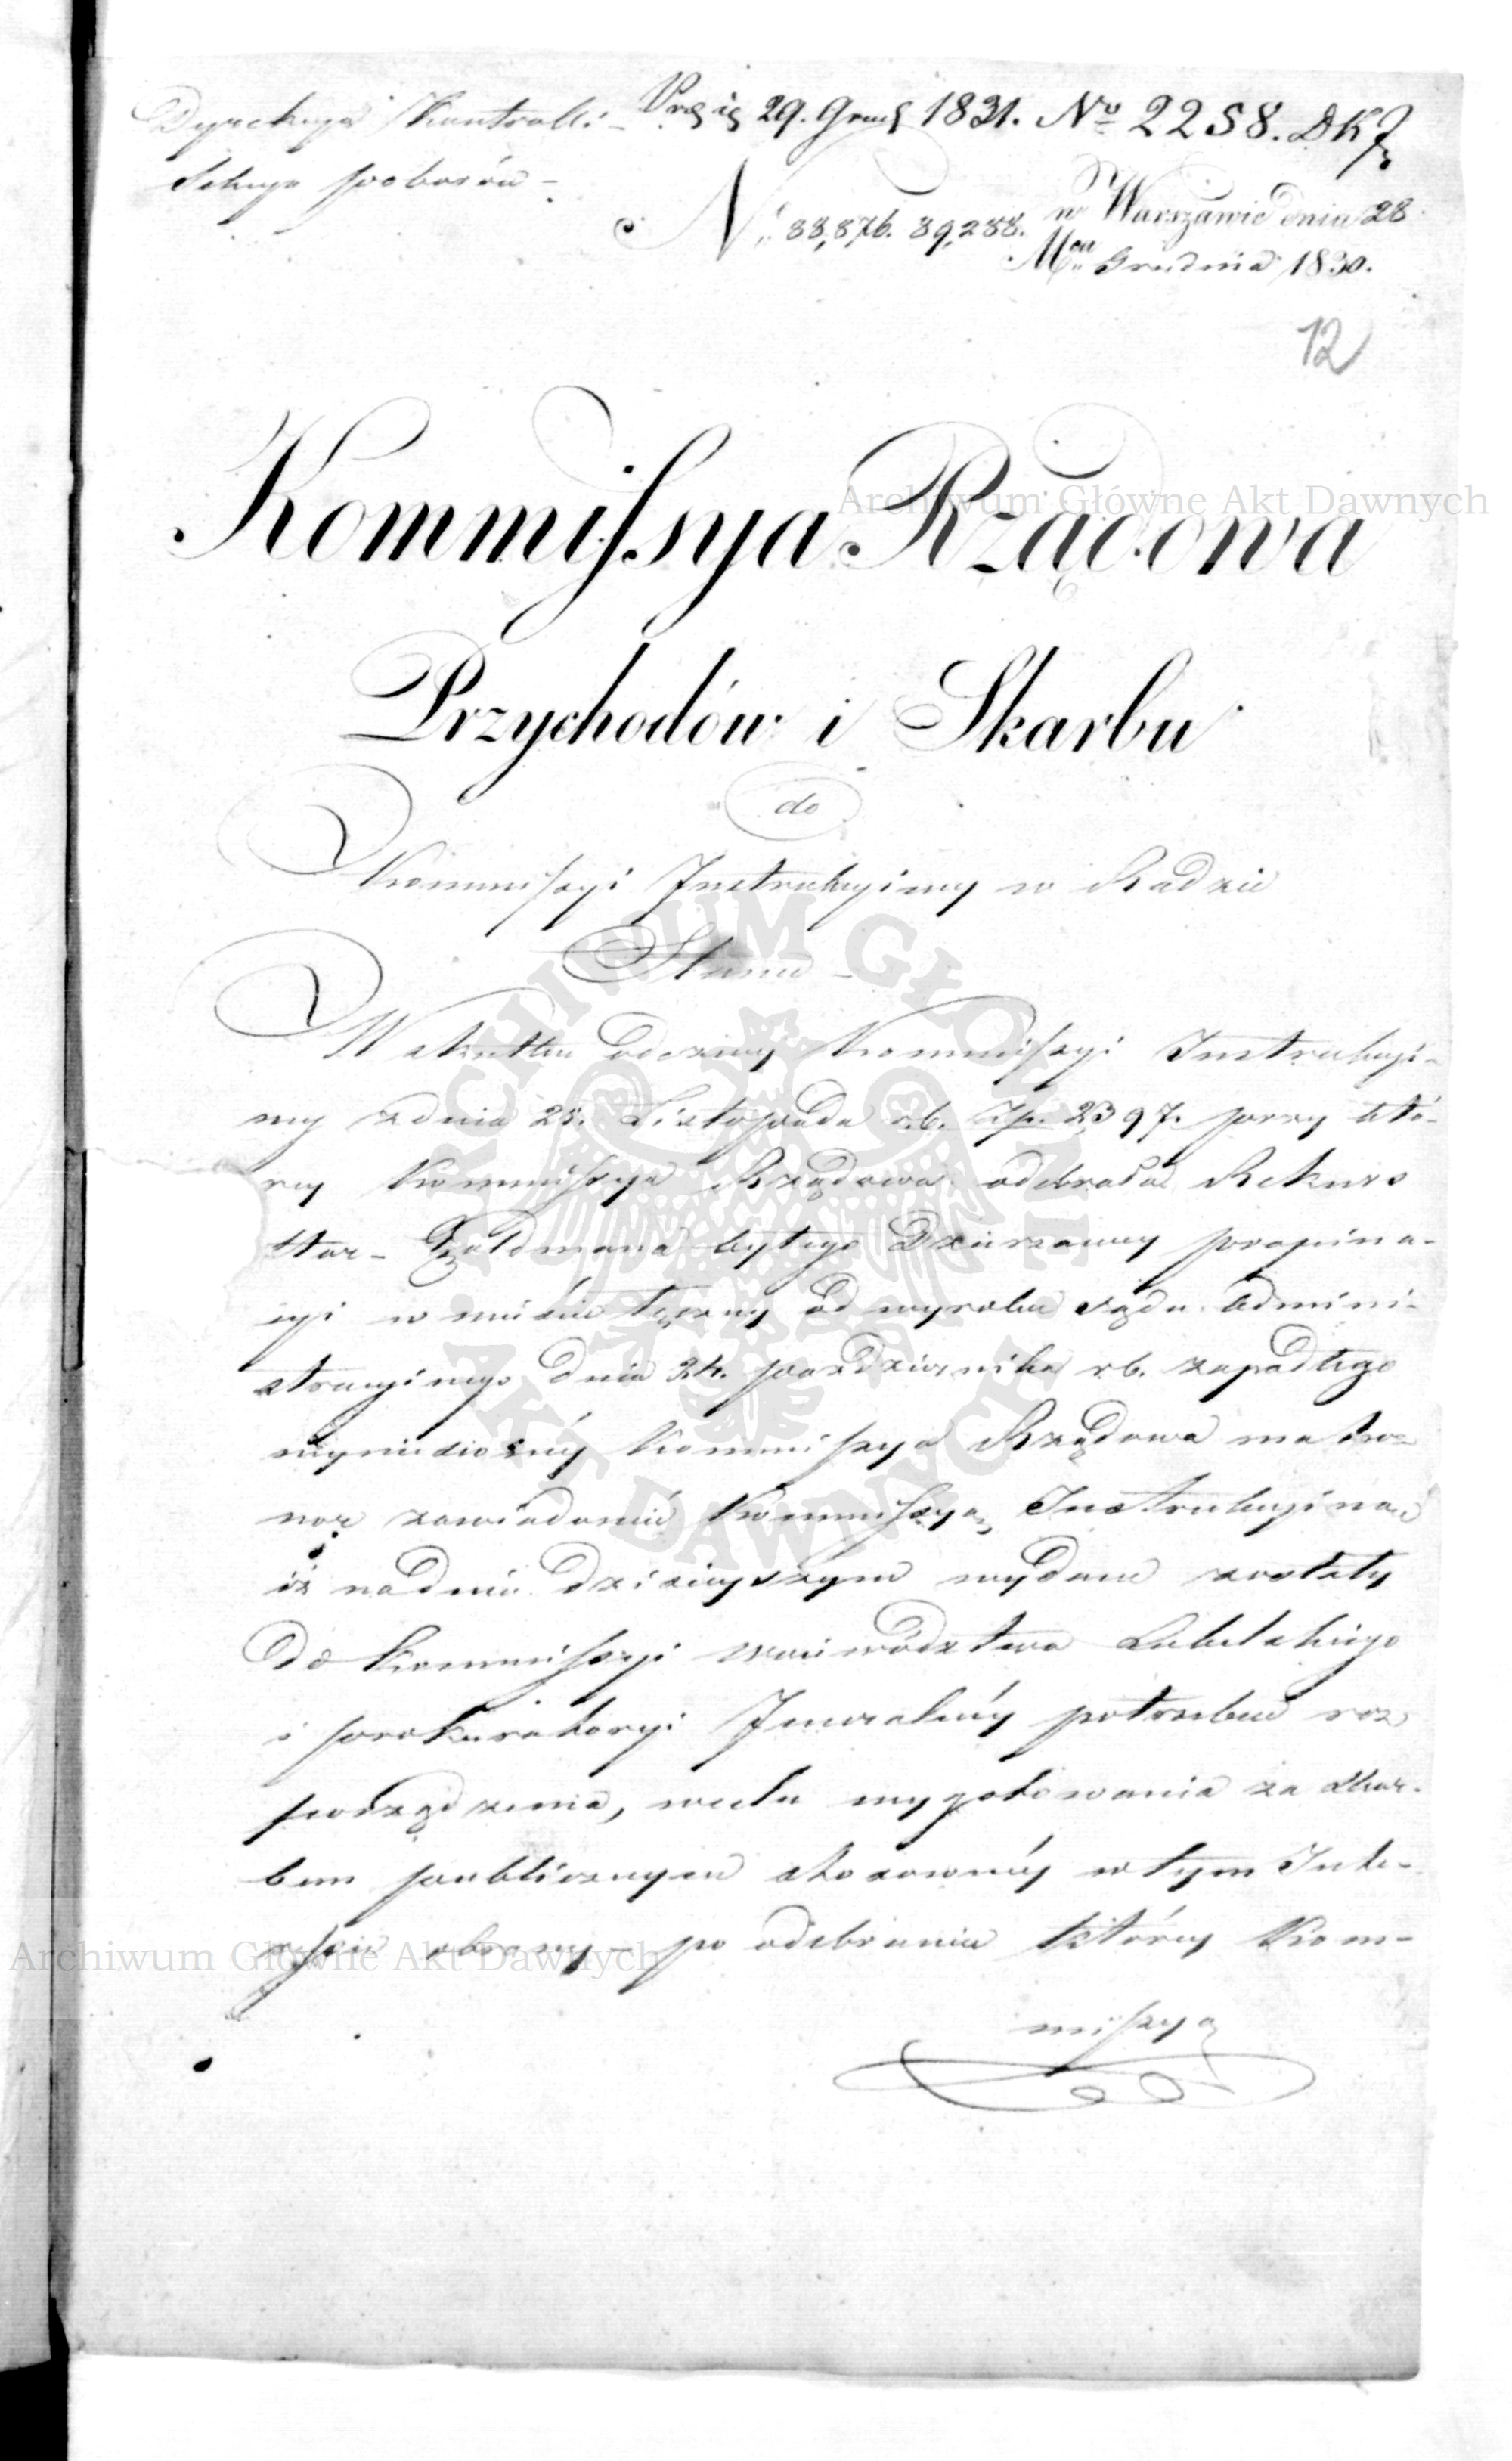 Dyrekcya Kontrolli
Sekcya poborów
29. Grud 1831. No 2258. DKJ
N 88,876. 89,288. w Warszawie dnia 28
Mca Grudnia 1830.
12
Kommissya Rządowa
Przychodów i Skarbu
do
Kommissyi Instrukcyiney w Radzie
Stanu
W skutku odezwy Kommissyi Instrukcyi-
ney z dnia 25. Listopada r.b. 2397. przy któ-
rey Kommissya Rządowa odebrała Rekurs
byłego Dzierzawcy propina-
cyi w mieście od wyroku Sądu Admini-
stracyinego dnia 24. pazdziernika r.b. zapadłego
wyniesiony Kommissya Rządowa ma ho-
nor zawiadomić Kommissyą Instrukcyiną
iż na dniu dzisieyszym wydane zostały
do Kommissyi Woiewództwa Lubelskiego
i prokuratoryi Jeneralney potrzebne roz
porządzenia, wcelu wygotowania za Skar-
bem publicznym stosowney w tym Inte-
ressie obrony - po odebraniu którey Kom-
missya
Archiwum Główne Akt Dawnych
ARCHIWUM GŁÓWNE AKT DAWNYCH
Archiwum Główne Akt Dawnych